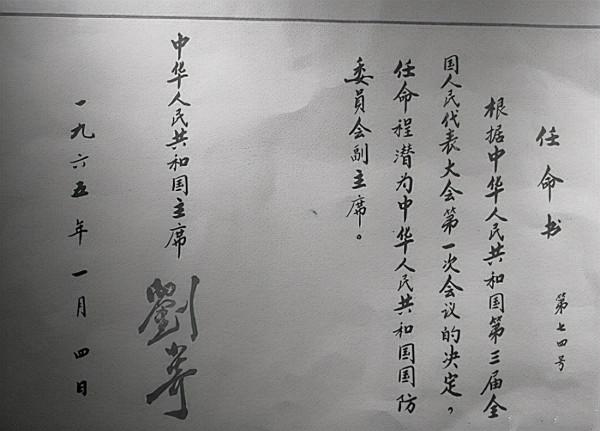 任命书
第七四号
根据中华人民共和国第三届全
国人民代表大会第一次会议的决定，
任命程潜为中华人民共和国国防
委员会副主席。
中华人民共和国主席
劉少奇
一九六五年一月四日